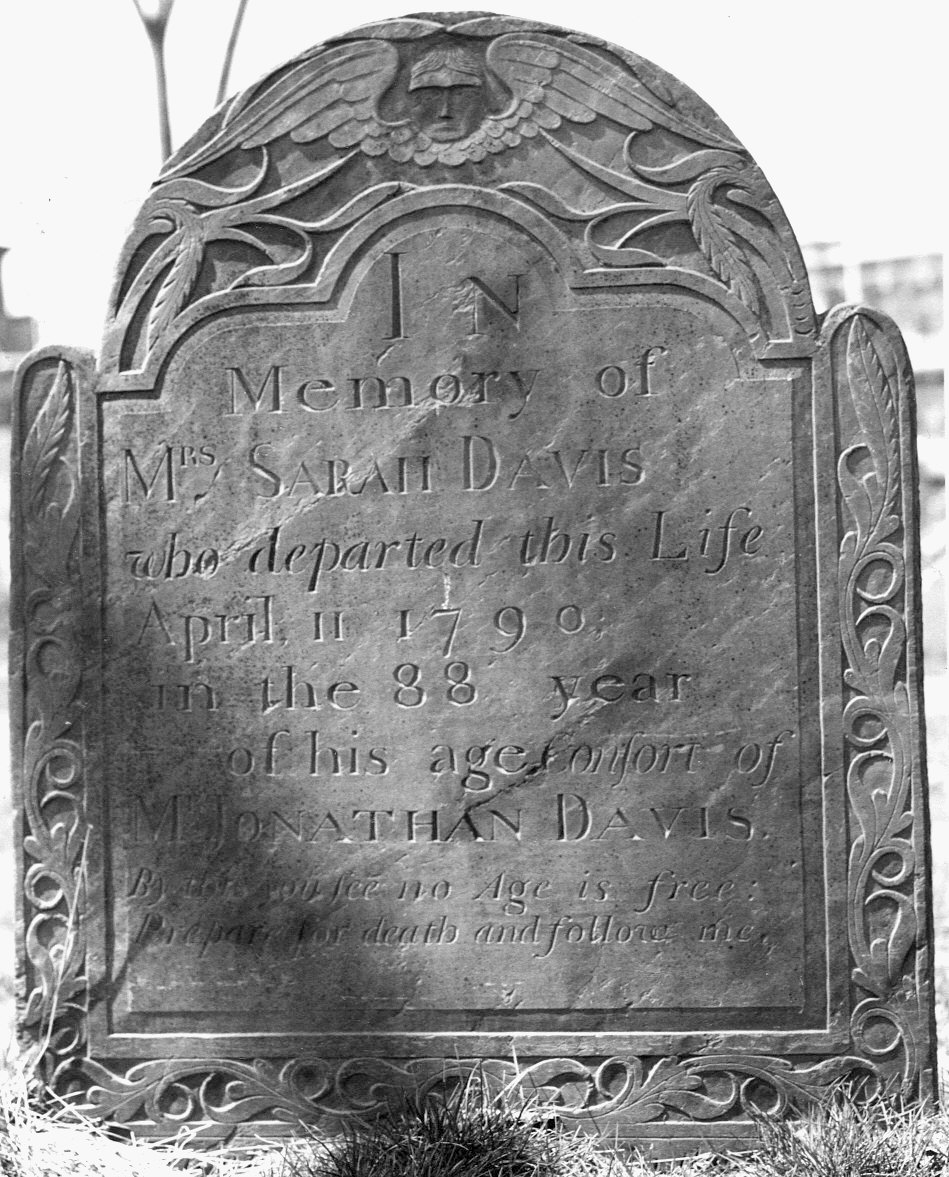 IN
Memory of
Mrs, SARAH DAVIS
who departed this Life
April, 11 1790;
in the 88 year
of his age Conſort of
Mr. JONATHAN DAVIS.
By you ſee no Age is free:
Prepare for death and follow me,